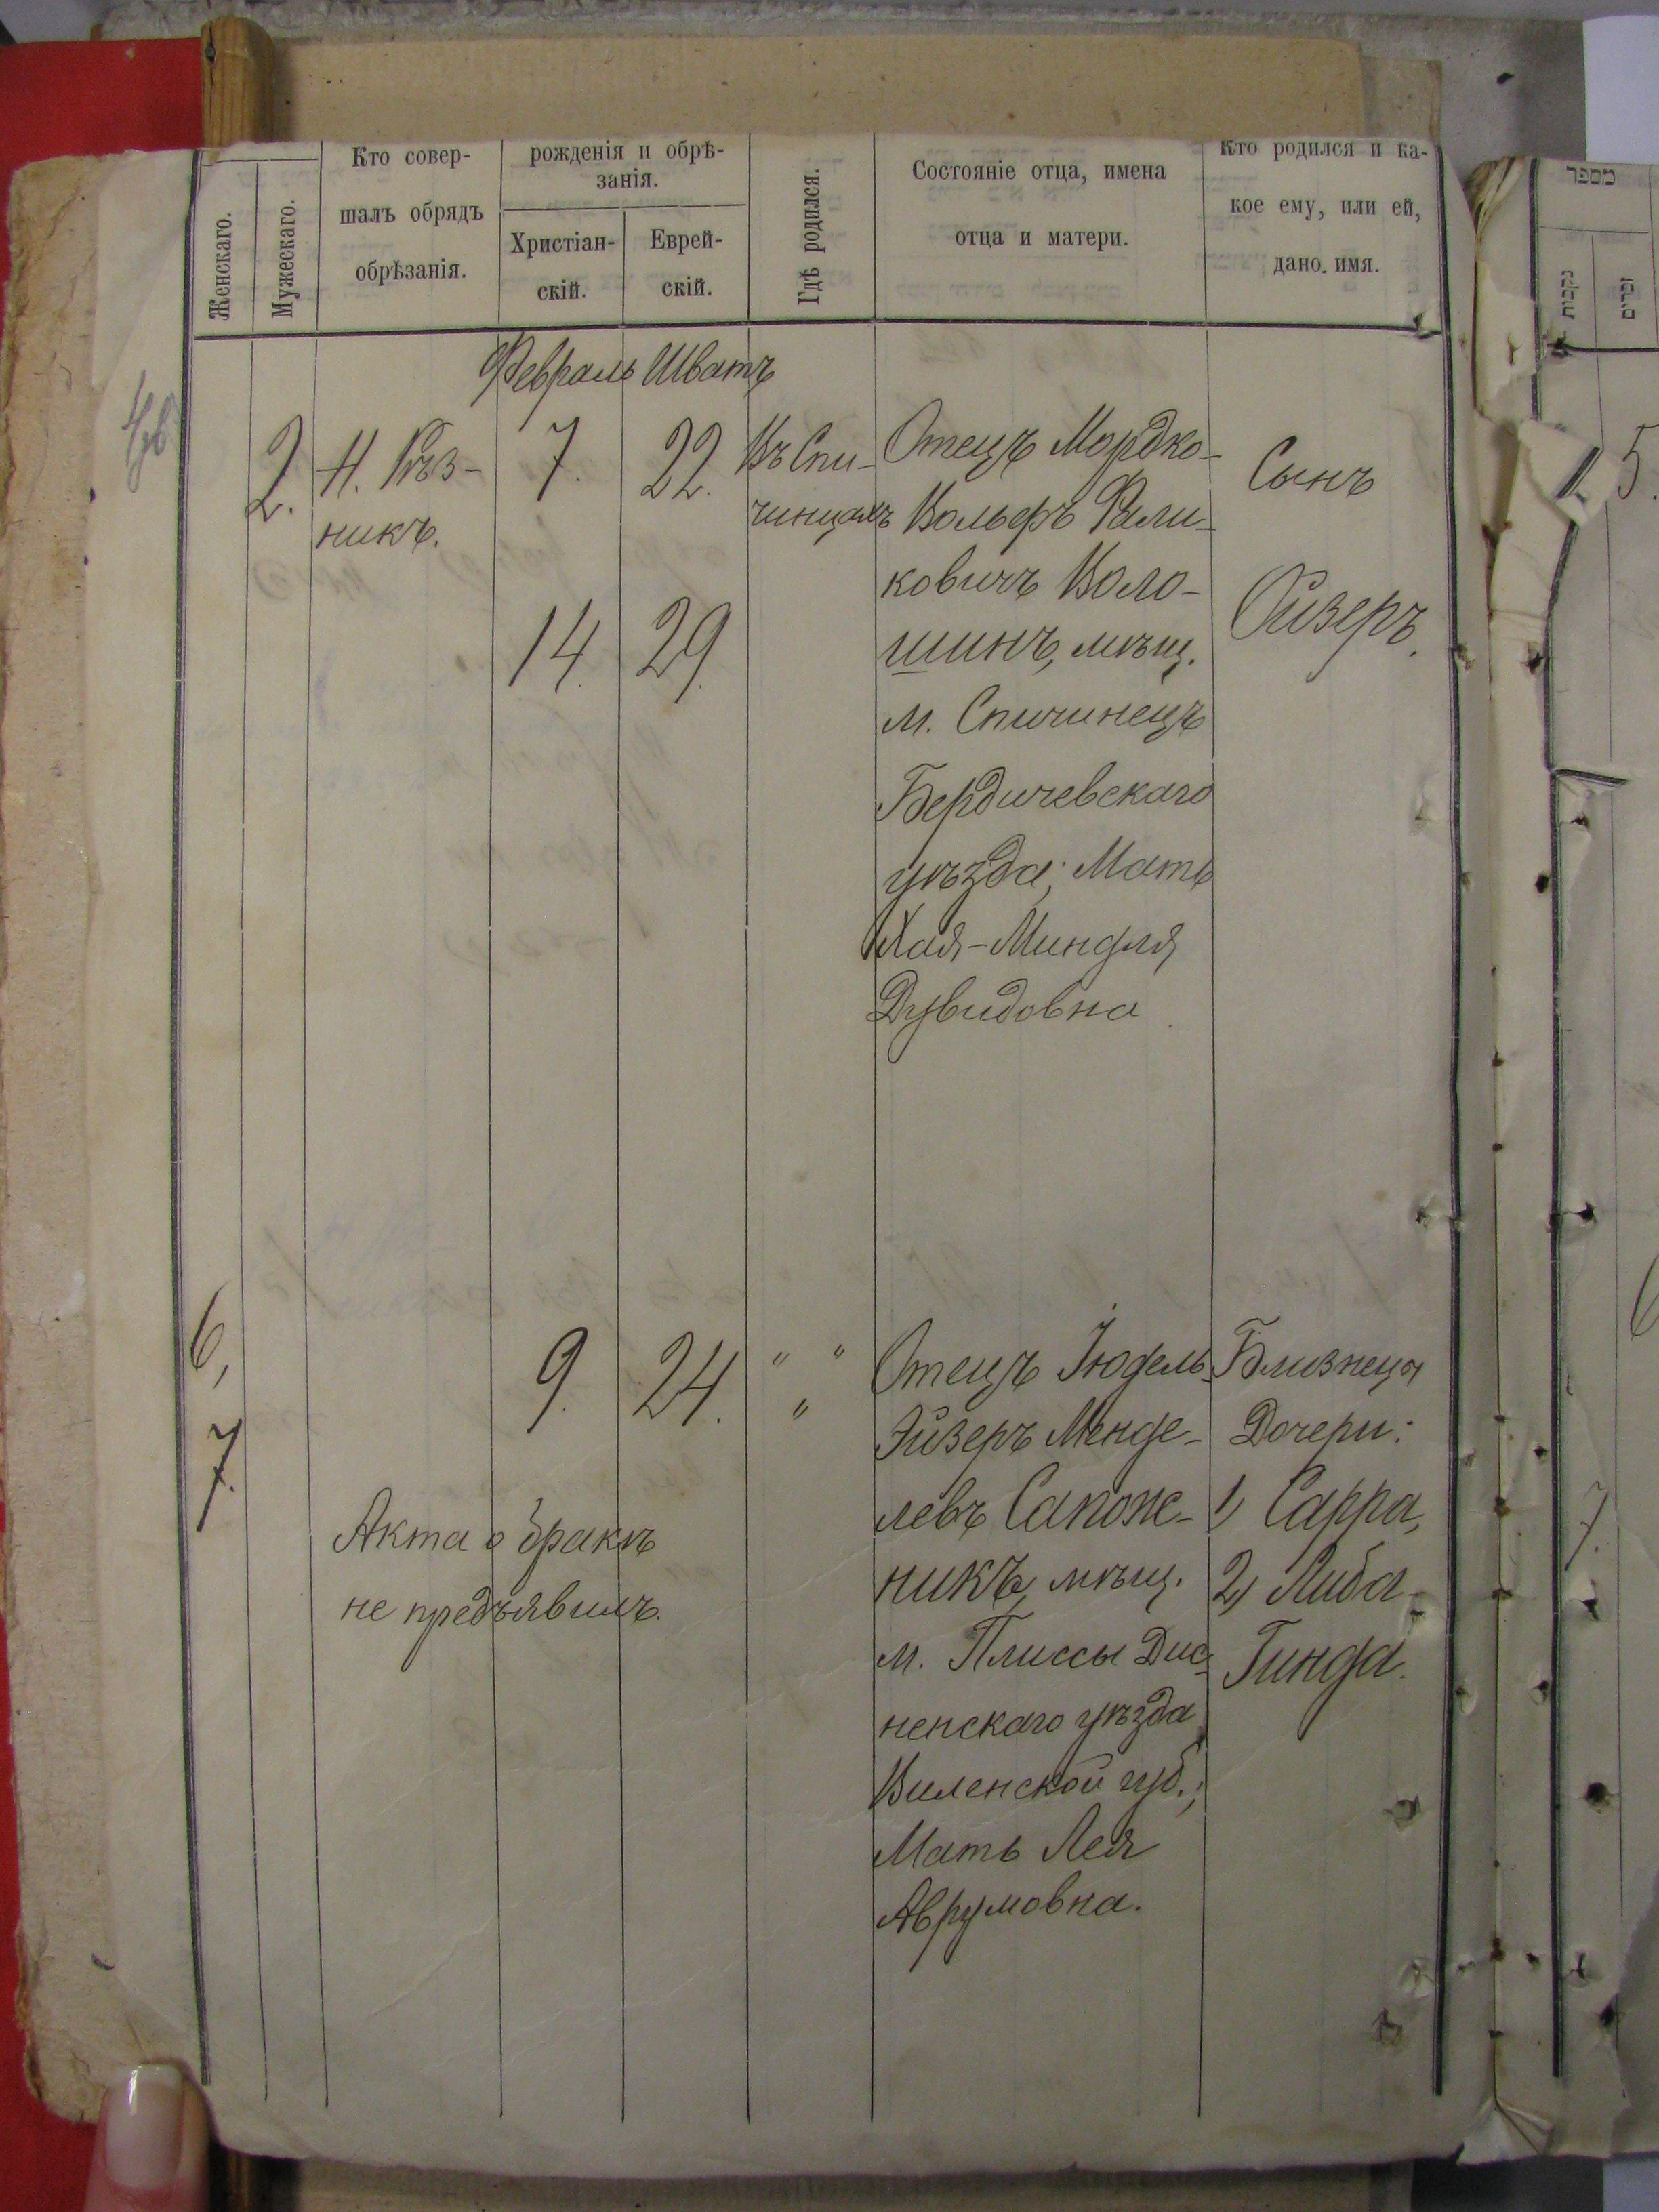 Женскаго.
Мужескаго.
Кто совер-
шалъ обрядъ
обрѣзанія.
рожденія и обрѣ-
занія.
Христіан-
скій.
Еврей-
скій.
Гдѣ родился.
Состояніе отца, имена
отца и матери.
Кто родился и ка-
кое ему, или ей,
дано имя.
Февраль Шватъ
2.
Н. Рѣз-
никъ.
7.
14.
22.
29.
Въ Спи-
чинцахъ
Отецъ Мордко-
Вольфъ Фали-
ковичъ Воло-
шинъ, мѣщ.
м. Спичинецъ
Бердичевскаго
уѣзда; Мать
Хая-Миндля
Дувидовна
Сынъ
Ойзеръ.
6,
7.
Акта о бракѣ
не предъявилъ.
9.
24.
" "
"
Отецъ Іюдель-
Эйзеръ Менде-
левъ Сапож-
никъ, мѣщ.
м. Плиссы Дис-
ненскаго уѣзда
Виленской губ.;
Мать Лея
Аврумовна.
Близнецы
Дочери:
1) Сарра,
2) Либа-
Гинда.
מספר
נקבות
זכרים
5.
7.